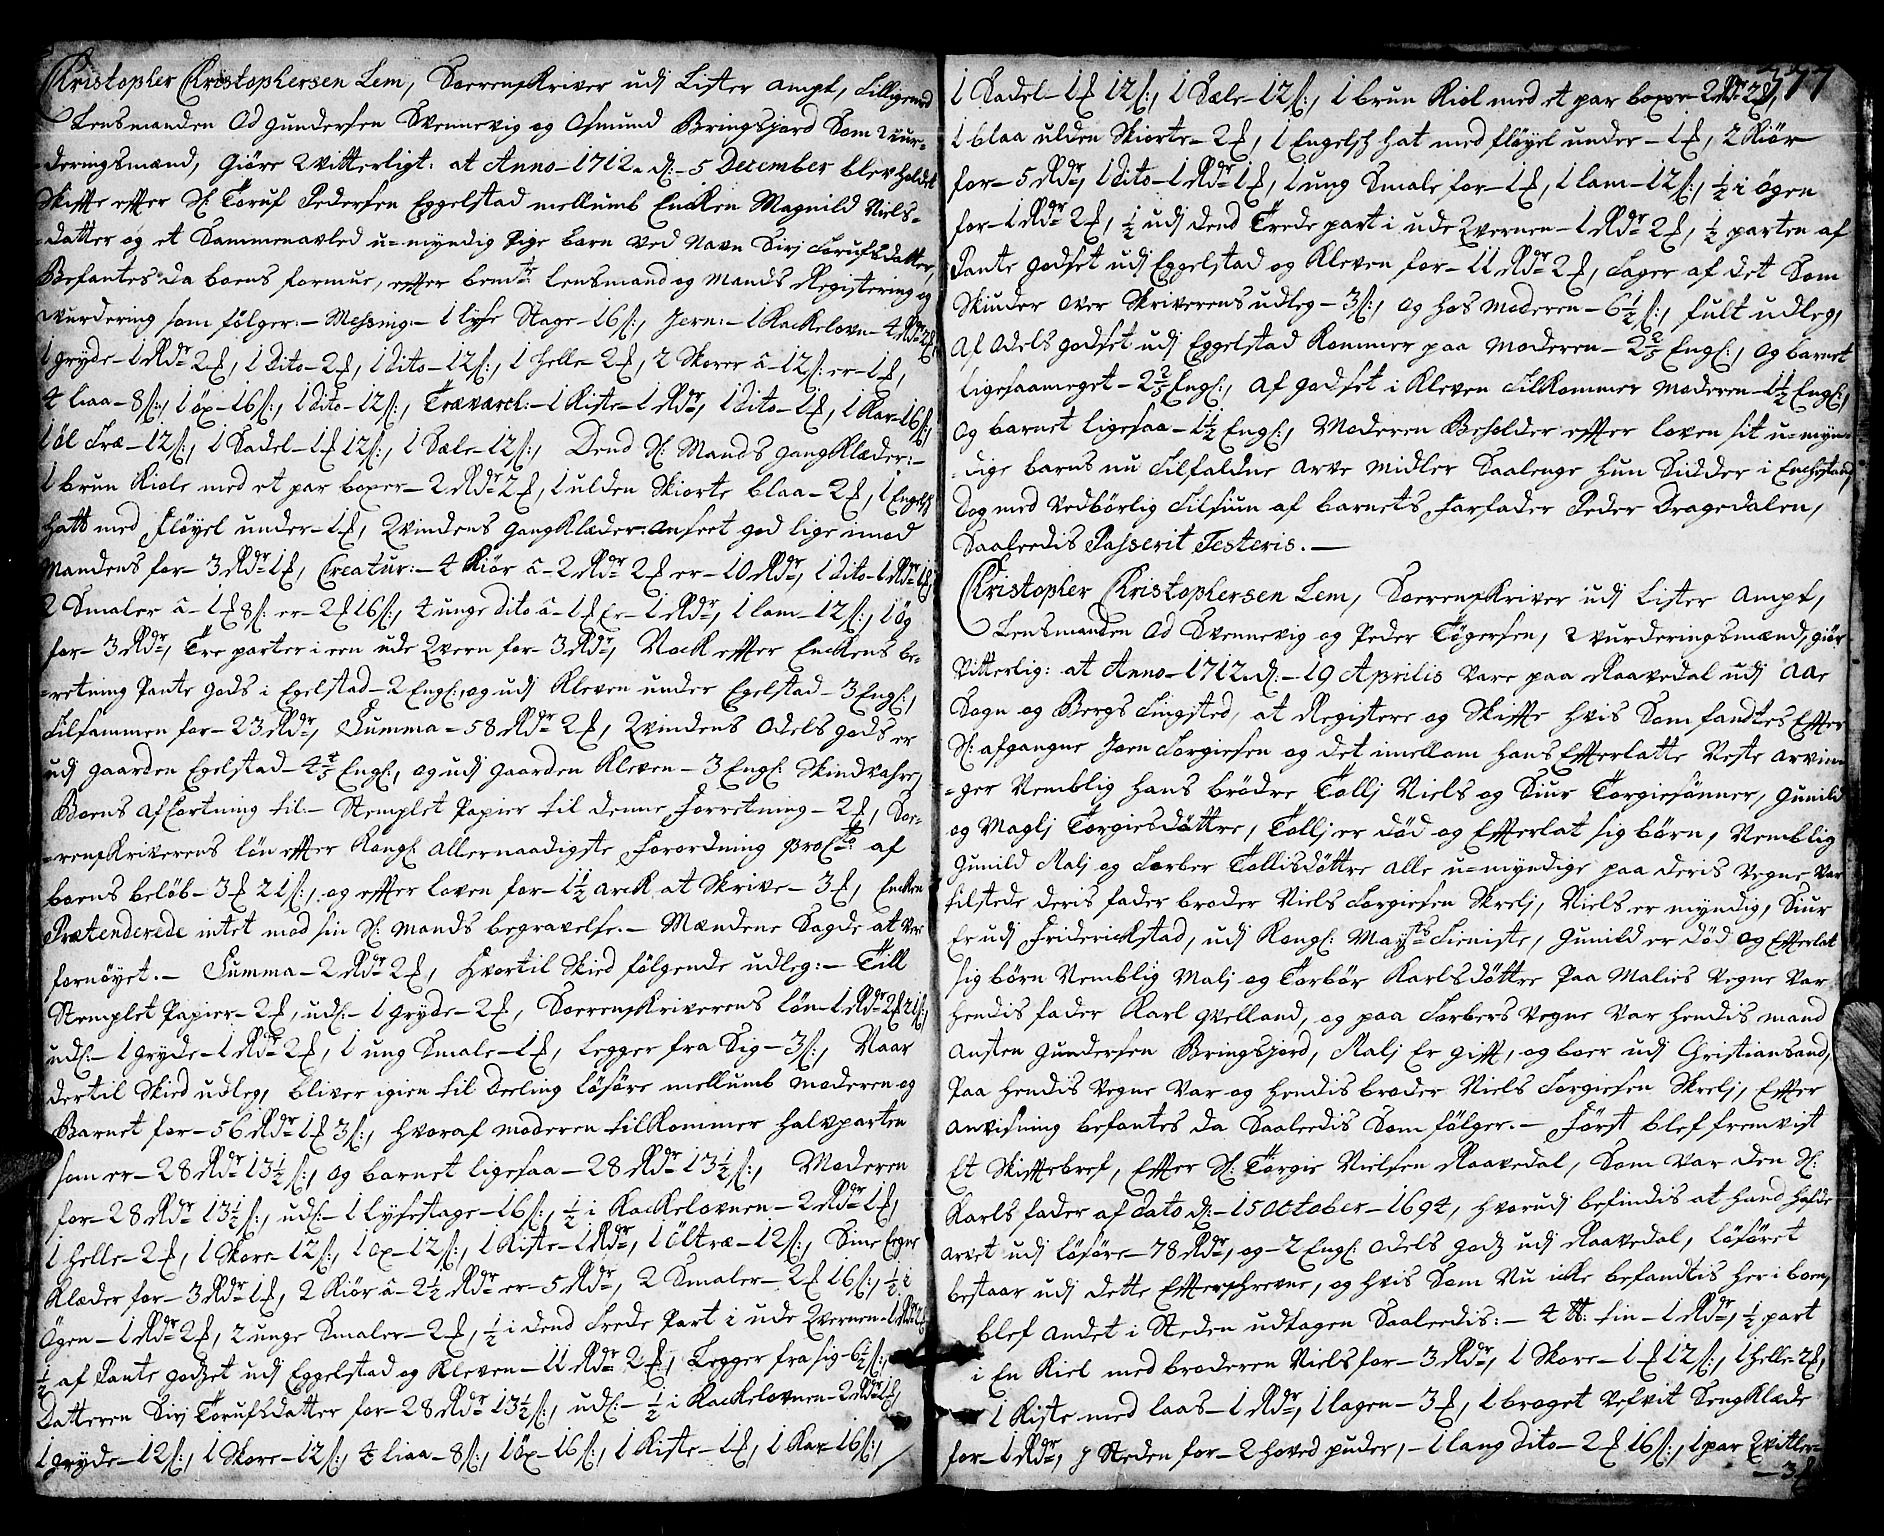 Christopher Christophersen Lem, Sorenskriver udj Lister Ampt, Tilligemed
Lensmanden Od Gundersen Svennevig og Osmund Bringsjord Som 2 vur-
-deringsmænd, Giöre Witterligt: at Anno-1712. d:- 5 December blev holdet
Skiffte effter Sl: Toruf Pedersen Eggelstad mellumb Encken Magnild Niels-
-datter og et Sammenavled u=myndig Pige barn ved Navn Siri Torufsdatter,
Befantes da boens formue, effter bemte Lensmand og Mends Registering og
wurdering som fölger:- Messing:- 1 lyse Stage-16 s:, Jern:- 1 Kackelovn-4 Rdr 2 f
1 gryde-1 Rdr 2 f, 1 dito-2 f, 1 dito-12 s:, 1 helle-2 f, 2 Skorer â-12 s: er-1 f,
4 liaa-8 s:, 1 öx-16 s:, 1 dito-12 s:, Trævarel:- 1 Kiste-1 Rdr, 1 dito-1 f, 1 Kar-16 s:,
1 öl Træ-12 s:, 1 Sadel-1 f 12 s:, 1 Sæle-12 s:, Dend Sl: Mands gangKlæder:-
1 brun Kiole med et par boxer-2 Rdr 2 f, 1 ulden Skiorte blaa-2 f, 1 Engelsk
hatt med flöyel under-1 f, Qvindens GangKlæder anseet god lige imod
Mandens for-3 Rdr 1 f, Creatur:- 4 Kiör â-2 Rdr 2 f er-10 Rdr, 1 dito-1 Rdr 1 f,
2 Smaler â-1 f 8 s: er-2 f 16 s:, 4 unge dito â-1 f Er-1 Rdr, 1 lam-12 s:, 1 Ög
for-3 Rdr, Tre parter i een ude Qvern for-3 Rdr, Nock effter Enckens be-
-retning Pante Gods i Egelstad-2 Engl:, og udj Kleven under Egelstad-3 Engl:,
Tilsammen for-23 Rdr, Summa-58 Rdr 2 f, Qvindens Odels gods er
udj gaarden Egelstad-4 4/5 Engl:, og udj gaarden Kleven-3 Engl: Skindvahre,
Boens Affkortning til:- Stemplet Papier til denne forretning-2 f, Sor-
-renskriverens lön effter Kongl: allernaadigste Forordning Pro Cto af
boens belöb-3 f 21 s:, og effter loven for-1 1/2 arck at Skrive-3 f, Encken
Prætenderede intet mod sin Sl: Mands begravelse.- Mændene Sagde at vere
fornöyet.- Summa-2 Rdr 2 f, Hvortil Skied fölgende udleg:- Till
Stemplet Papier-2 f, udl:- 1 gryde-2 f, Sorrenskriverens lön-1 Rdr 2 f 21 s:,
udl:- 1 gryde-1 Rdr 2 f, 1 ung Smale-1 f, legger fra Sig-3 s:, Naar
dertil Skied udleg, bliver igien til deeling löszöre mellumb moderen og
Barnet for-56 Rdr 1 f 3 s:, hvoraf moderen tilkommer halvparten
som er-28 Rdr 13 1/2 s:, og barnet ligesaa-28 Rdr 13 1/2 s:, Moderen
for-28 Rdr 13 1/2 s:, udl:- 1 lysestage-16 s:, 1/2 i Kackelovnen-2 Rdr 1 f,
1 helle-2 f, 1 Skore-12 s:, 1 ox-12 s:, 1 Kiste-1 Rdr, 1 öltræ-12 s:, Sine Eegne
Klæder for-3 Rdr 1 f, 2 Kiör â-2 1/2 Rdr er-5 Rdr, 2 Smaler-2 f 16 s:, 1/2 i
Ögen-1 Rdr 2 f, 2 unge Smaler-2 f, 1/2 i dend Trede Part i ude Qvernen-1 Rdr 2 f,
1/2 af Pante godzet udj Eggelstad og Kleven-11 Rdr 2 f, Legger fra sig-6 1/2 s:,
Datteren Siri Torufsdatter for-28 Rdr 13 1/2 s:, udl:- 1/2 i Kackelovnen-2 Rdr 1 f,
1 gryde-12 s:, 1 Skore-12 s:, 4 liaa-8 s:, 1 öx-16 s:, 1 Kiste-1 f, 1 Kar-16 s:,
377
1 Sadel-1 f 12 s:, 1 Sæle-12 s:, 1 brun Kiol med et par boxer-2 Rdr 2 f,
1 blaa ulden Skiorte-2 f, 1 Engelsk hat med flöyel under-1 f, 2 Kiör
for-5 Rdr, 1 dito-1 Rdr 1 f, 1 ung Smale for-1 f, 1 lam-12 s:, 1/2 i Ögen
for-1 Rdr 2 f, 1/2 udj dend Trede part i ude Qvernen-1 Rdr 2 f, 1/2 parten af
Pante godset udj Eggelstad og Kleven for-11 Rdr 2 f, Tager af det Som
Skiuder over Skriverens udleg-3 s:, og hos moderen-6 1/2 s:, fult udleg,
Af Odels godset udj Eggelstad Kommer paa moderen-2 2/5 Engl:, og barnet
ligesaameget-2 2/5 Engl:, af godset i Kleven Tilkommer moderen-1 1/2 Engl:,
og barnet ligesaa-1 1/2 Engl:, Moderen Beholder effter loven sit u=myn-
-dige barns nu Tilfaldne arve midler Saalenge hun Sidder i Enchestand,
Dog med vedbörlig Tilsiun af barnets farfader Peder Dragedalen,
Saaleedis Passerit Testeris.-
Christopher Christophersen Lem, Sorrenskriver udj Lister Ampt,
Lensmanden Od Svennevig og Peder Tögersen, 2 vurderingsmænd, giör
vitterlig: at Anno-1712. d:- 19 Aprilis vare paa Raavedal udj Aae
Sogn og Bergs Tingsted, at Registere og Skiffte hvis Som fandtes Effter
Sl: afgangne Joen Torgiesen og det imellom hans Effterlatte Neste arvin-
-ger Nemblig hans brödre Tollj Niels og Siur Torgiesönner, Gunild
og Maglj Torgiesdöttre, Tollj er död og Effterlat sig börn, Nemblig
Gunild Malj og Torber Tollisdöttre alle u=myndige paa deris vegne var
tilstede deris fader broder Niels Torgiesen Skrelj, Niels er myndig, Siur
Er udj Friderickstad, udj Kongl: Mayts Tieniste, Gunild er död og Effterlat
sig börn Nemblig Malj og Torbör Karlsdöttre Paa Malies vegne var
hendis fader Karl Qvelland, og paa Torbers vegne var hendis mand
Ansten Gundersen Bringsjord, Malj Er gifft, og boer udj Christiansand,
Paa hendis vegne var og hendis broder Niels Torgiesen Skrelj, Effter
anvisning befantes da Saaleedis Som fölger.- Först blef fremvist
Et Skifftebref, Effter Sl: Torgie Nielsen Raavedal, Som var den Sl:
Karls fader af dato d:-15 October-1694, hvorudj befindis at hand hafde
arvet udj löszöre-78 Rdr, og-2 Engl: Odels godz udj Raavedal, löszöret
bestaar udj dette Effterschrevne, og hvis Som Nu icke befandtis her i boen,
blef andet i Steden udtagen Saaleedis:- 4 lb: tin-1 Rdr, 1/2 part
i En Kiel med broderen Niels for-3 Rdr, 1 Skore-1 f 12 s:, 1 helle-2 f,
1 Kiste med laas-1 Rdr, 1 lagen-3 f, 1 broget vefvit SengKlæde
for-1 Rdr, J Steden for-2 hoved puder,-1 lang dito-2 f 16 s:, 1 par Qvitler
-3 f